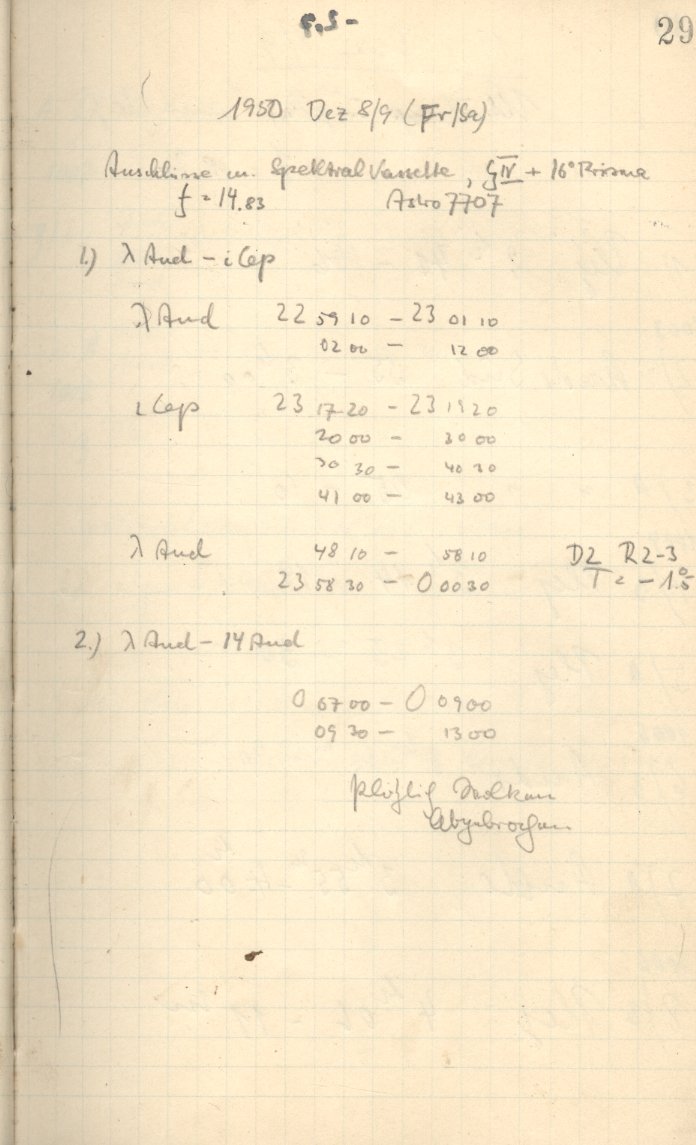 29
1950 Dez 8/9 (Fr/Sa)
Anschlüsse m. Spektralkassette, GIV + 16° Prisma
f = 14.83 Astro 7707
1.) λ And - ι Cep
λ And 22 59 10 - 23 01 10
02 00 - 12 00
ι Cep 23 17 20 - 23 19 20
20 00 - 30 00
30 30 - 40 30
41 00 - 43 00
λ And 48 10 - 58 10 D2 R2-3
23 58 30 - 0 00 30 T = -1.5°
2.) λ And - 14 And
0 07 00 - 0 09 00
09 30 - 13 00
Plötzlich Wolken
Abgebrochen